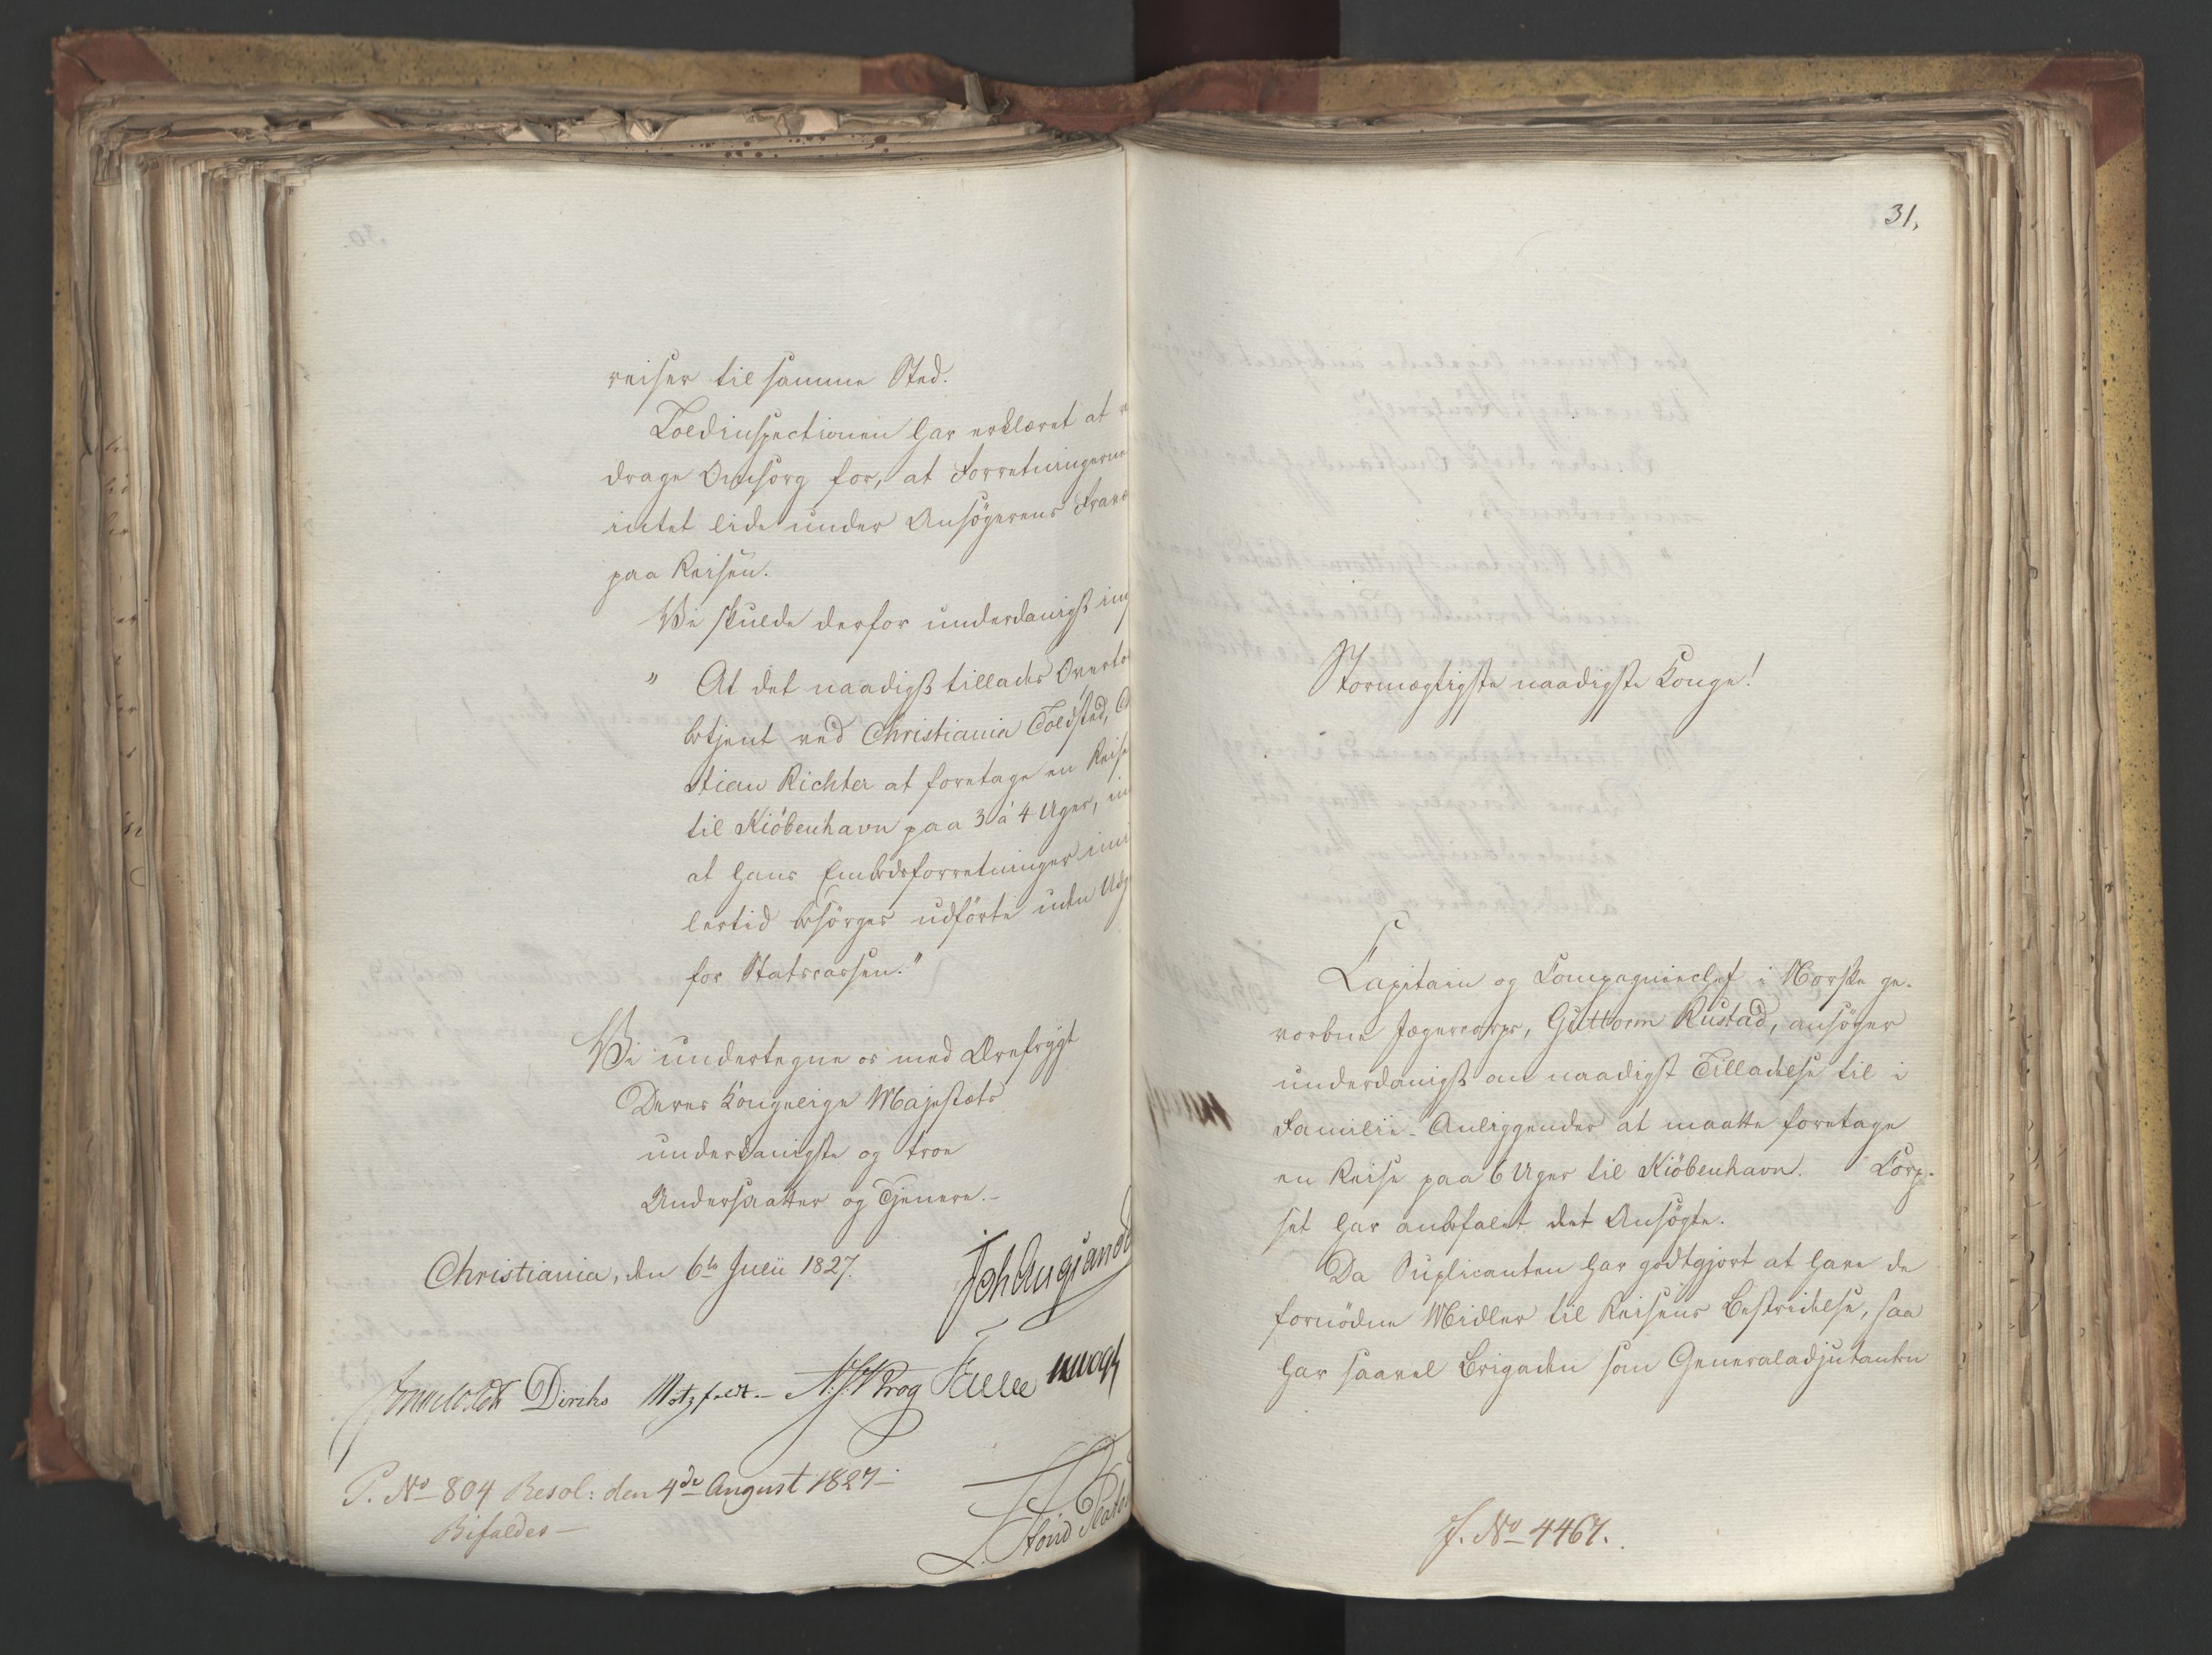 reiser til samme Sted.
Toldinspectionen har erklæret at
drage Omsorg for, at Forretningerne
intet lide under Ansøgerens Frave
paa Reisen.
Vi skulde derfor underdanigst in
" At det naadigst tillades Overto
betjent ved Christiania Toldsted, C
stian Richter at foretage en Reise
til Kiöbenhavn paa 3 á 4 Uger, 
at hans Embedsforretninger imi
lertid besörges udförte uden Udg
for Statscassen."
Vi undertegne os med Ærefrygt
Deres Kongelige Majestæts
underdanigste og troe
Undersaatter og Tjenere.-
Christiania, den 6te Julii 1827.
Diriks Motzfeldt.- Krog Fasting
P. No 804 Resol: den 4de August 1827-
Bifaldes-
31.
Stormægtigste naadigste Konge!
Capitain og Compagniechef i Norske ge-
vorbne Jægercorps, Guttorm Rustad, ansöger
underdanigst om naadigst Tilladelse til i
Familie-Anliggender at maatte foretage
en Reise paa 6 Uger til Kiöbenhavn. Corp-
set har anbefalet det Ansögte.
Da Suplicanten har godtgjort at have de
fornödne Midler til Reisens Bestridelse, saa
har saavel Brigaden som Generaladjutanten
J. No 4467.